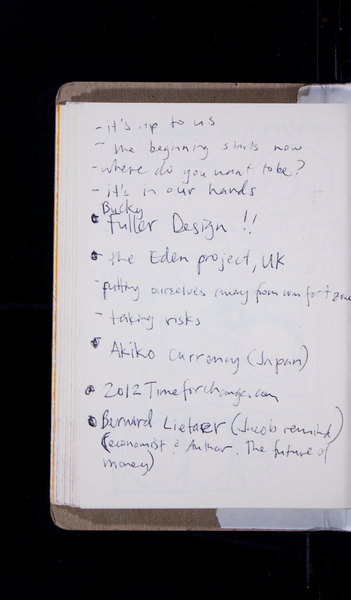 - it's up to us
- the beginning starts now
- where do you want to be?
- it's in our hands
Bucky
• Fuller Design !!
• the Eden project, UK
- putting ourselves away from comfort zone
- taking risks
• Akiko Currency (Japan)
• 2012Timeforchange.com
• Bernard Lietaer (Jacob remind)
(economist & Author. The future of
money)